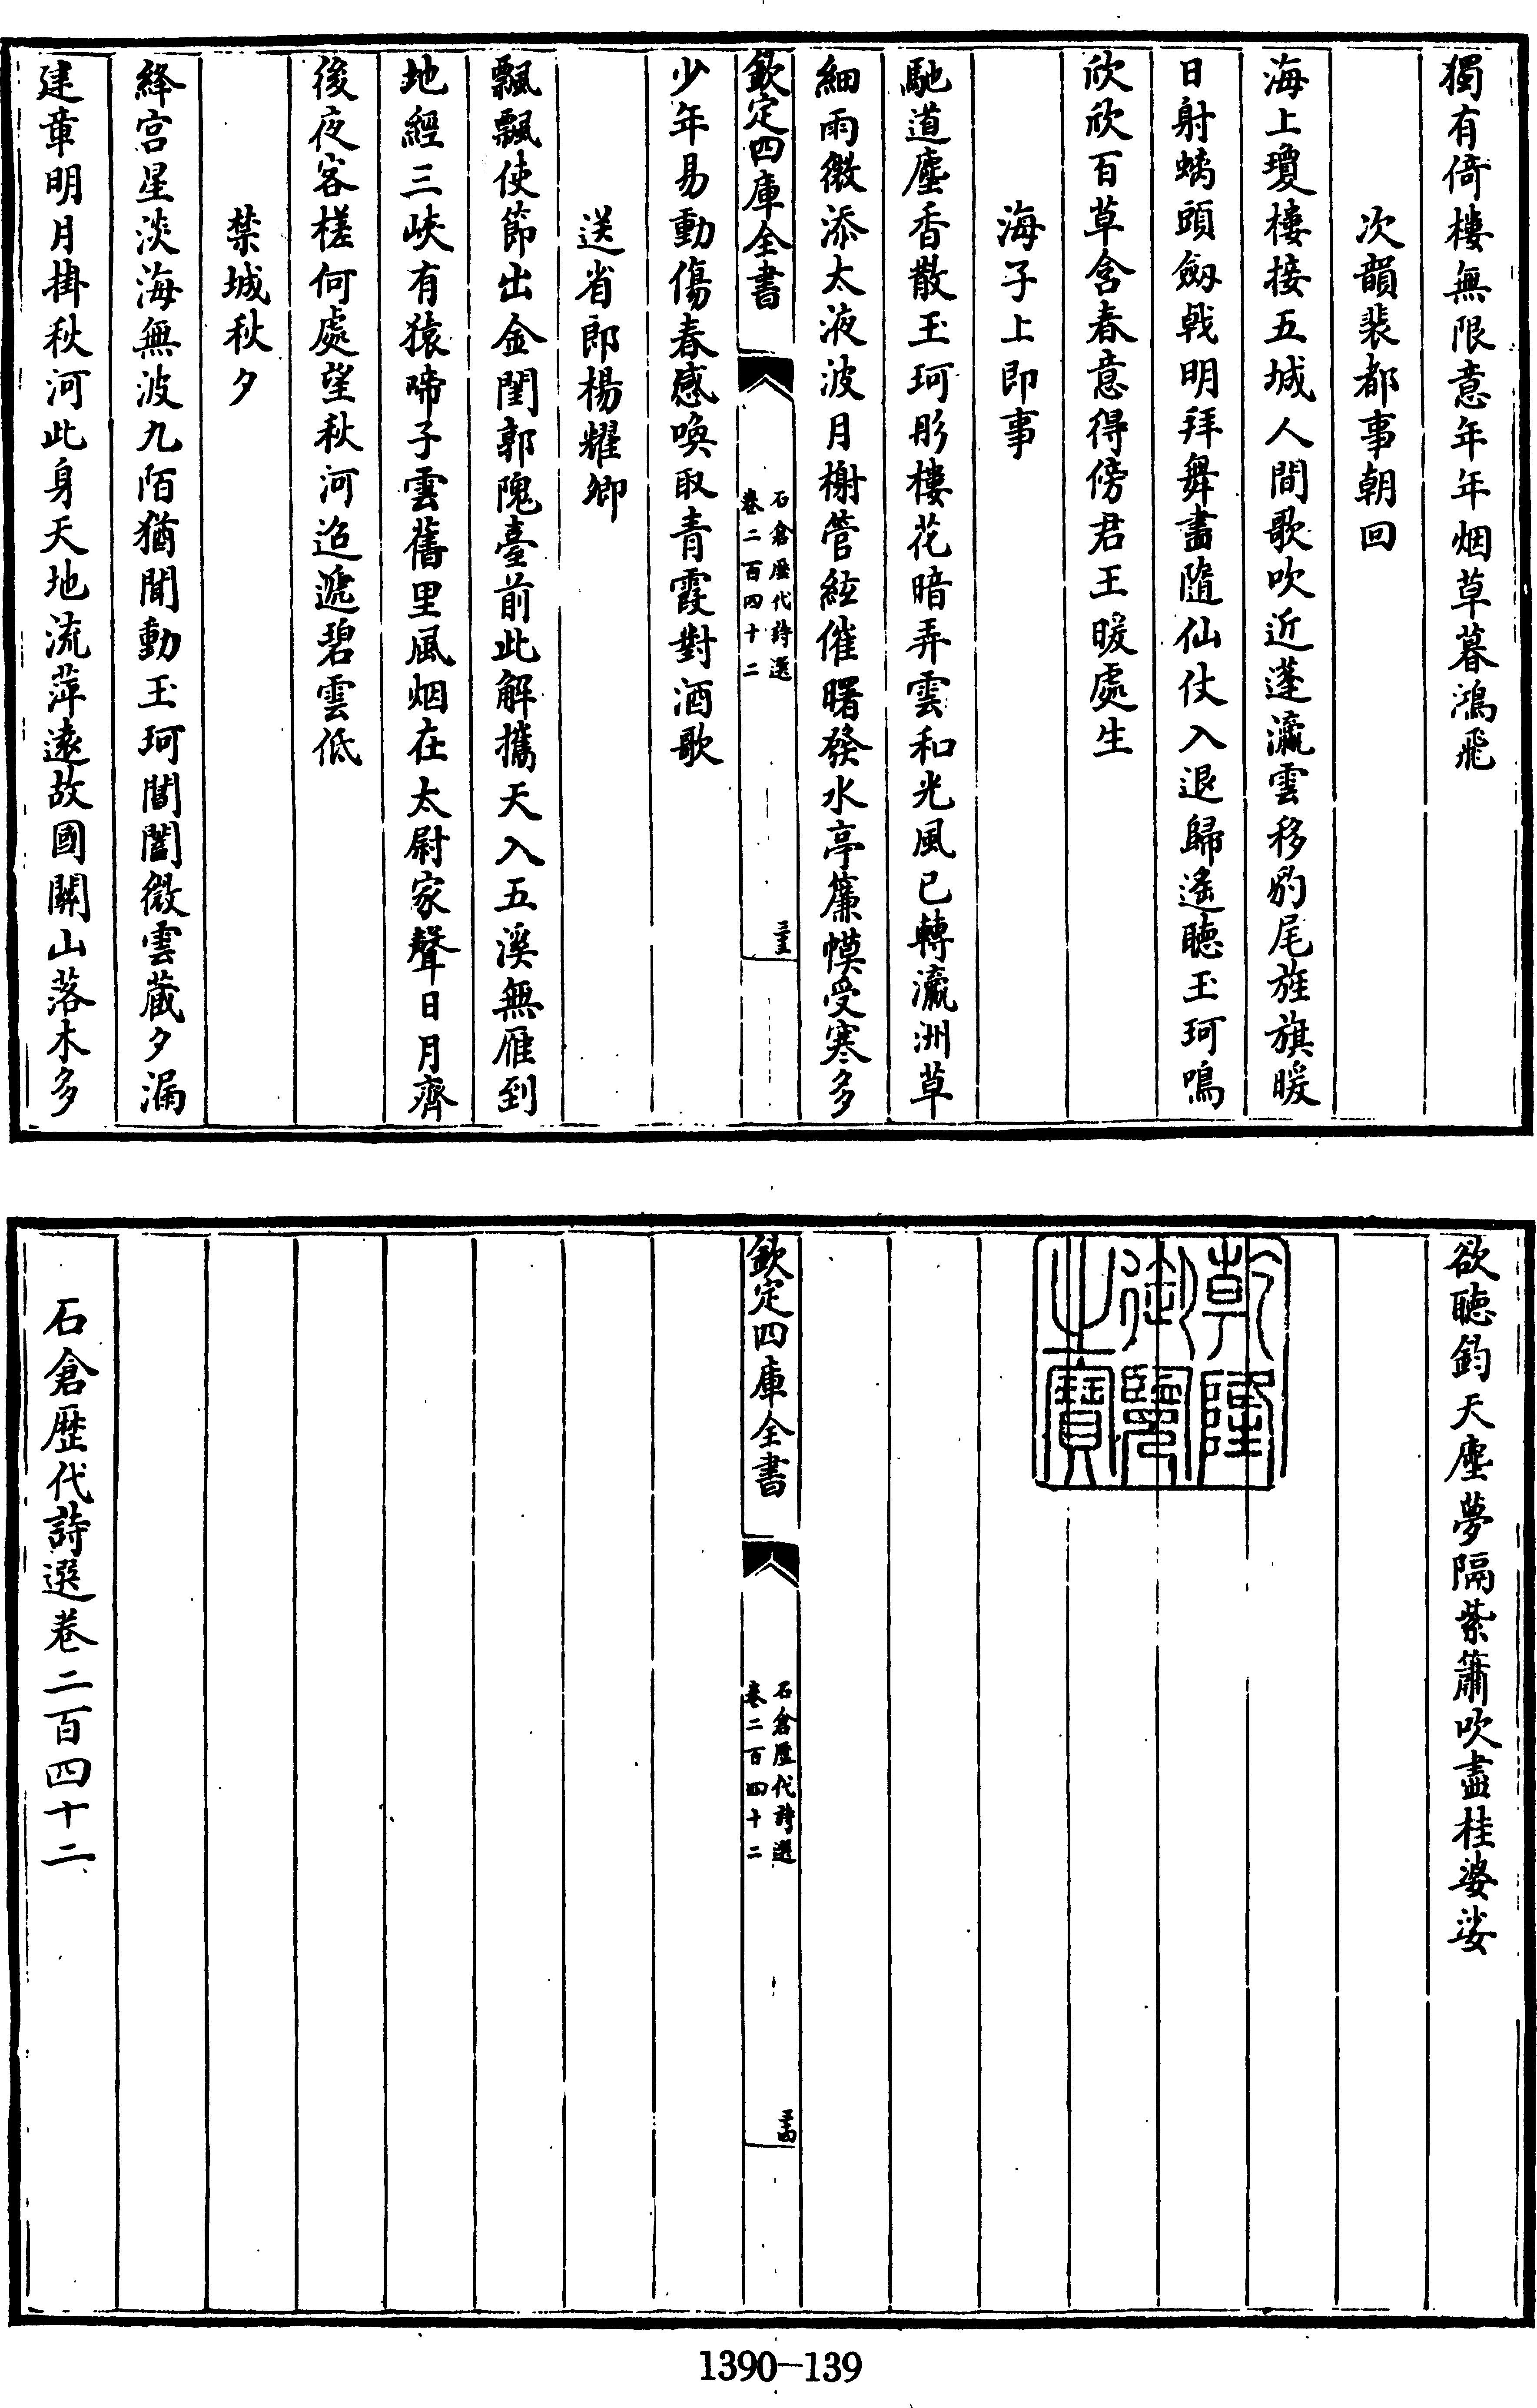 獨有倚樓無限意年年烟草暮鴻飛
次韻裴都事朝回
海上瓊樓接五城人間歌吹近蓬瀛雲移豹尾旌旗暖
日射螭頭劔㦸明拜舞畫隨仙仗入退歸遙聽玉珂鳴
欣欣百草含春意得傍君王暖處生
海子上即事
馳道塵香散玉珂彤樓花暗弄雲和光風已轉瀛洲草
細雨微添太液波月榭管絃催曙發水亭簾幙受寒多
欽定四庫全書
石倉歷代詩選
卷二百四十二
三十三
少年易動傷春感喚取青霞對酒歌
送省郎楊耀卿
飄飄使節出金閨郭隗臺前此解攜天入五溪無雁到
地經三峽有猿啼子雲舊里風烟在太尉家聲日月齊
後夜客槎何處望秋河迢遞碧雲低
禁城秋夕
絳宮星淡海無波九陌猶聞動玉珂閶闔微雲藏夕漏
建章明月掛秋河此身天地流萍遠故國關山落木多
欲聽鈞天塵夢隔紫簫吹盡桂婆娑
乾隆
御覽
之寶
欽定四庫全書
石倉歷代詩選
卷二百四十二
三十四
石倉歷代詩選卷二百四十二
1390-139